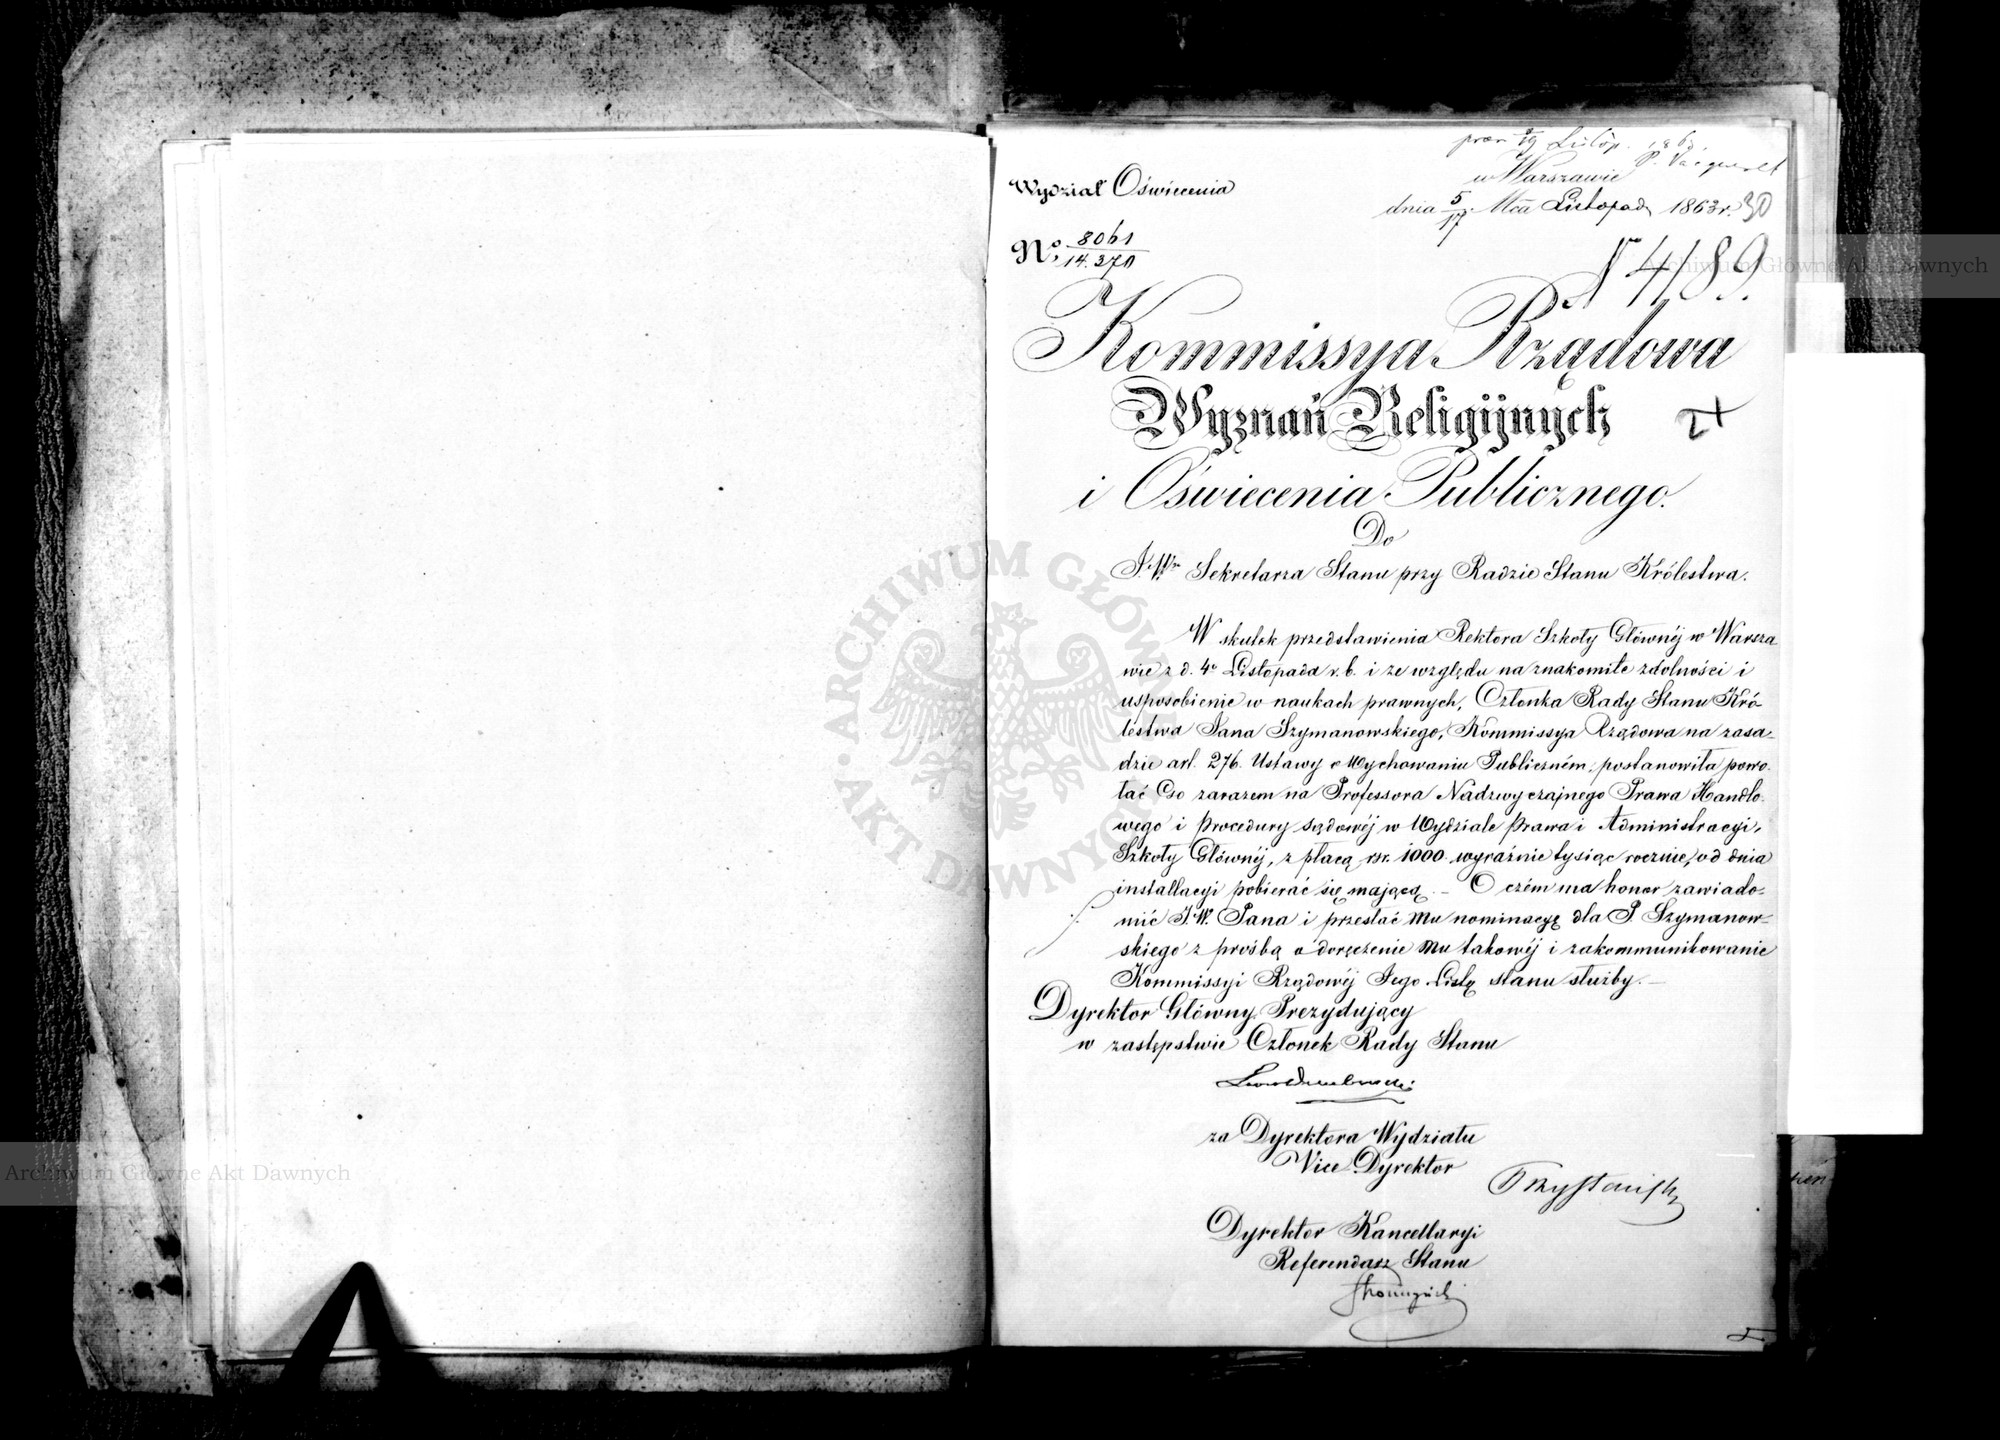 Wydział Oświecenia
Listop. 1863
w Warszawie
dnia 5/17 Mca Listopada 1863 r. 30
No. 8061/14.370
N 4189.
Kommissya Rządowa
Wyznań Religijnych
i Oświecenia Publicznego.
Do
J.W. Sekretarza Stanu przy Radzie Stanu Królestwa.
W skutek przedstawienia Rektora Szkoły Głównéj w Warsza-
wie z d. 4o Listopada r. b. i ze względu na znakomite zdolności i
usposobienie w naukach prawnych, Członka Rady Stanu Kró-
lestwa Jana Szymanowskiego, Kommissya Rządowa na zasa-
dzie art. 276. Ustawy o Wychowaniu Publiczném, postanowiła powo-
łać Go zarazem na Professora Nadzwyczajnego Prawa Handlo-
wego i Procedury sądowéj w Wydziale Prawa i Administracyi,
Szkoły Głównéj, z płacą rsr. 1000 wyraźnie tysiąc rocznie, od dnia
installacyi pobierać się mającą. – O czém ma honor zawiado-
mić J.W. Pana i przesłać Mu nominacyę dla P. Szymanow-
skiego z prośbą o doręczenie Mu takowéj i zakommunikowanie
Kommissyi Rządowéj Jego Listy stanu służby. –
Dyrektor Główny Prezydujący
w zastępstwie Członek Rady Stanu
za Dyrektora Wydziału
Vice Dyrektor
Przystański
Dyrektor Kancellaryi
Referendarz Stanu
Archiwum Główne Akt Dawnych
Archiwum Główne Akt Dawnych
ARCHIWUM GŁÓWNE AKT DAWNYCH